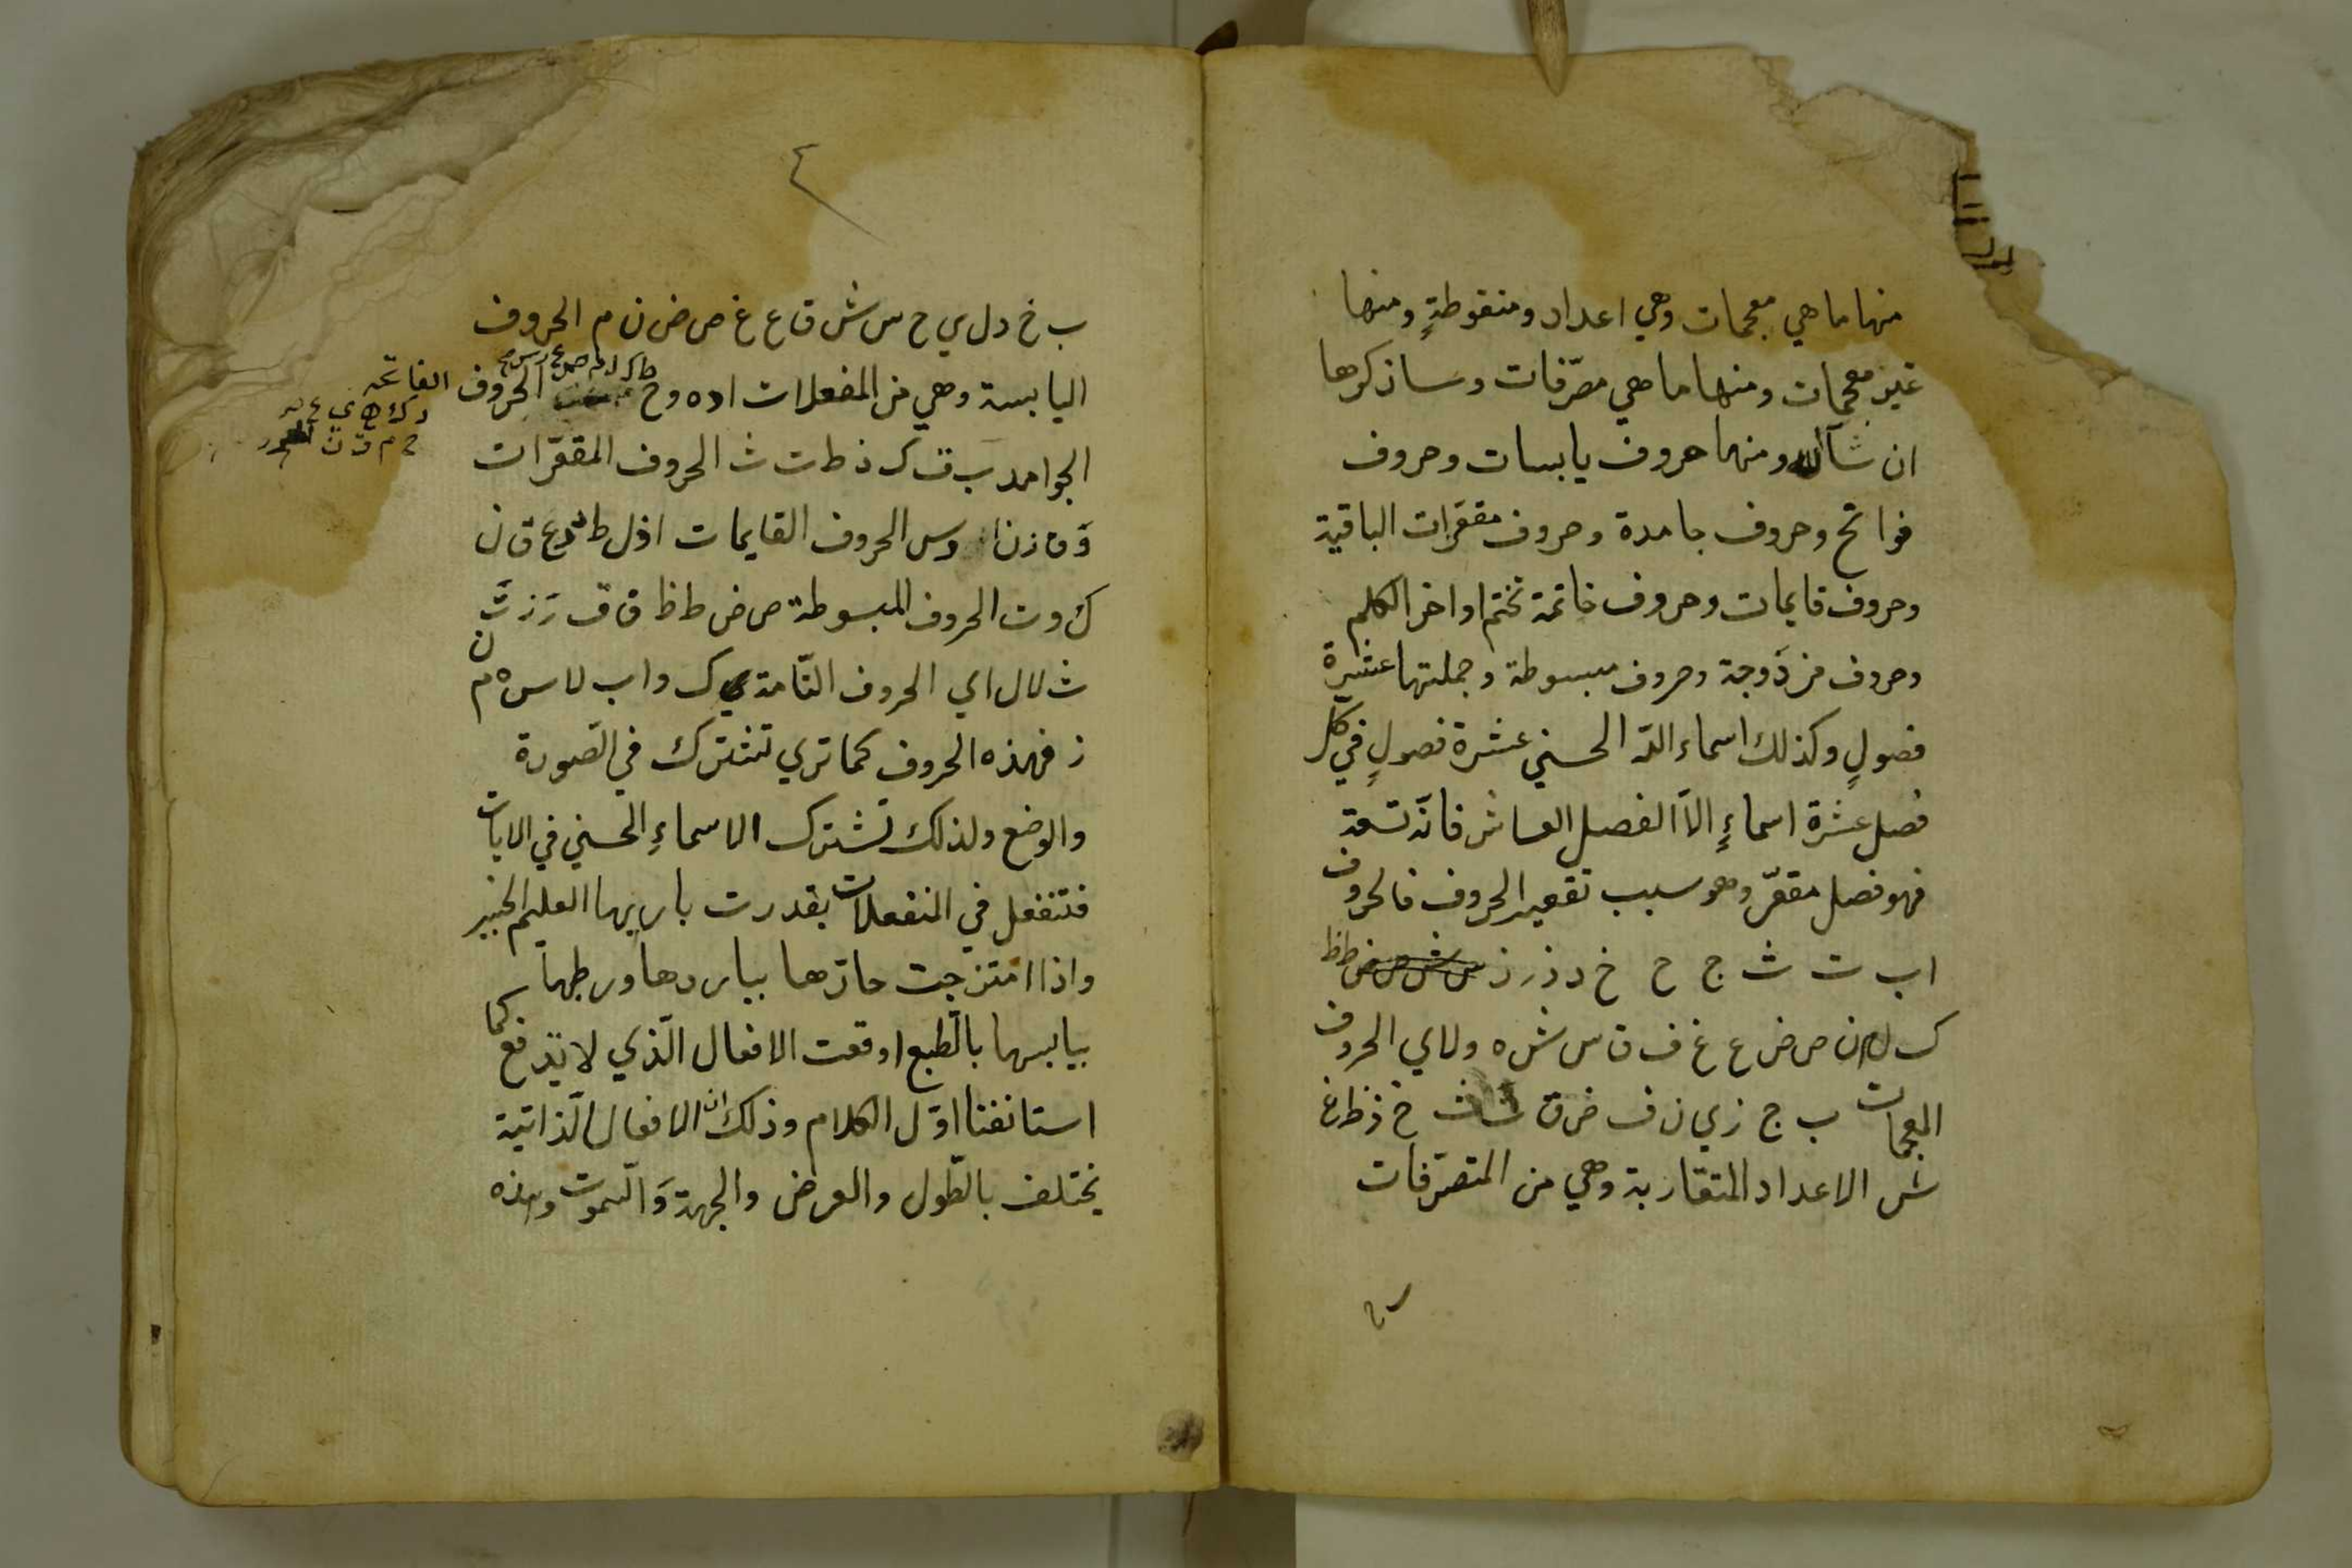 منها ما هي معجمات وهي اعداد ومنقوطةٍ ومنها
غير معجمات ومنها ما هي مصرّفات وساذكرها
ان شآالله ومنها حروف يابسات وحروف
فواتح وحروف جامدة وحروف مقعّرات الباقية
وحروف قايمات وحروف خاتمة تختم اواخر الكلم
وحروف مزدَوجة وحروف مبسوطة وجملتها عشرة
فصولٍ وكذلك اسماء اللّه الحسني عشرة فصولٍ في كل
فصل عشرة اسماءٍ الّا الفصل العاشر فانّه تسعة
فهو فصل مقعّر وهو سبب تقعير الحروف فالحروف
ا ب ت ث ج ح خ د ذ ر ز س ش ص ض ط ظ
ك ل م ن ص ض ع غ ف ق س ش ه و لا ي الحروف
المعجمات ب ج ز ي ن ف ض ق ت ث خ ذ ظ غ
ش الاعداد المتقاربة وهي من المتصرّفات
٤
ب خ د ل ي ح س ش ق ع غ ص ض ن م الحروف
اليابسة وهي من المفعلات ا د ه و ح الحروف الفاتحه
الجوامد ب ف ك ذ ط ت ث الحروف المقعّرات
و ق ز ن ا و س الحروف القايمات ا ذ ل ط د ع ق ن
ك و ت الحروف المبسوطة ص ض ط ظ ف ق ر ز ت ن
ث لا ل ا ي الحروف التّامة ي ك و ا ب لا س ه م
ز فهذه الحروف كما تري تشترك في الصّورة
والوضع ولذلك تشترك الاسماءِ الحسني في الايات
فتنفعل في المنفعلات بقدرت باريها العليم الخبير
واذا امتزجت حارّها بباردها ورطبها
بيابسها بالطّبع اوقعت الافعال الّذي لا تدفع كما
استانفنا اوّل الكلام وذلك انّ الافعال الذّاتية
يختلف بالطّول والعرض والجهة وَالسّموت وهذه